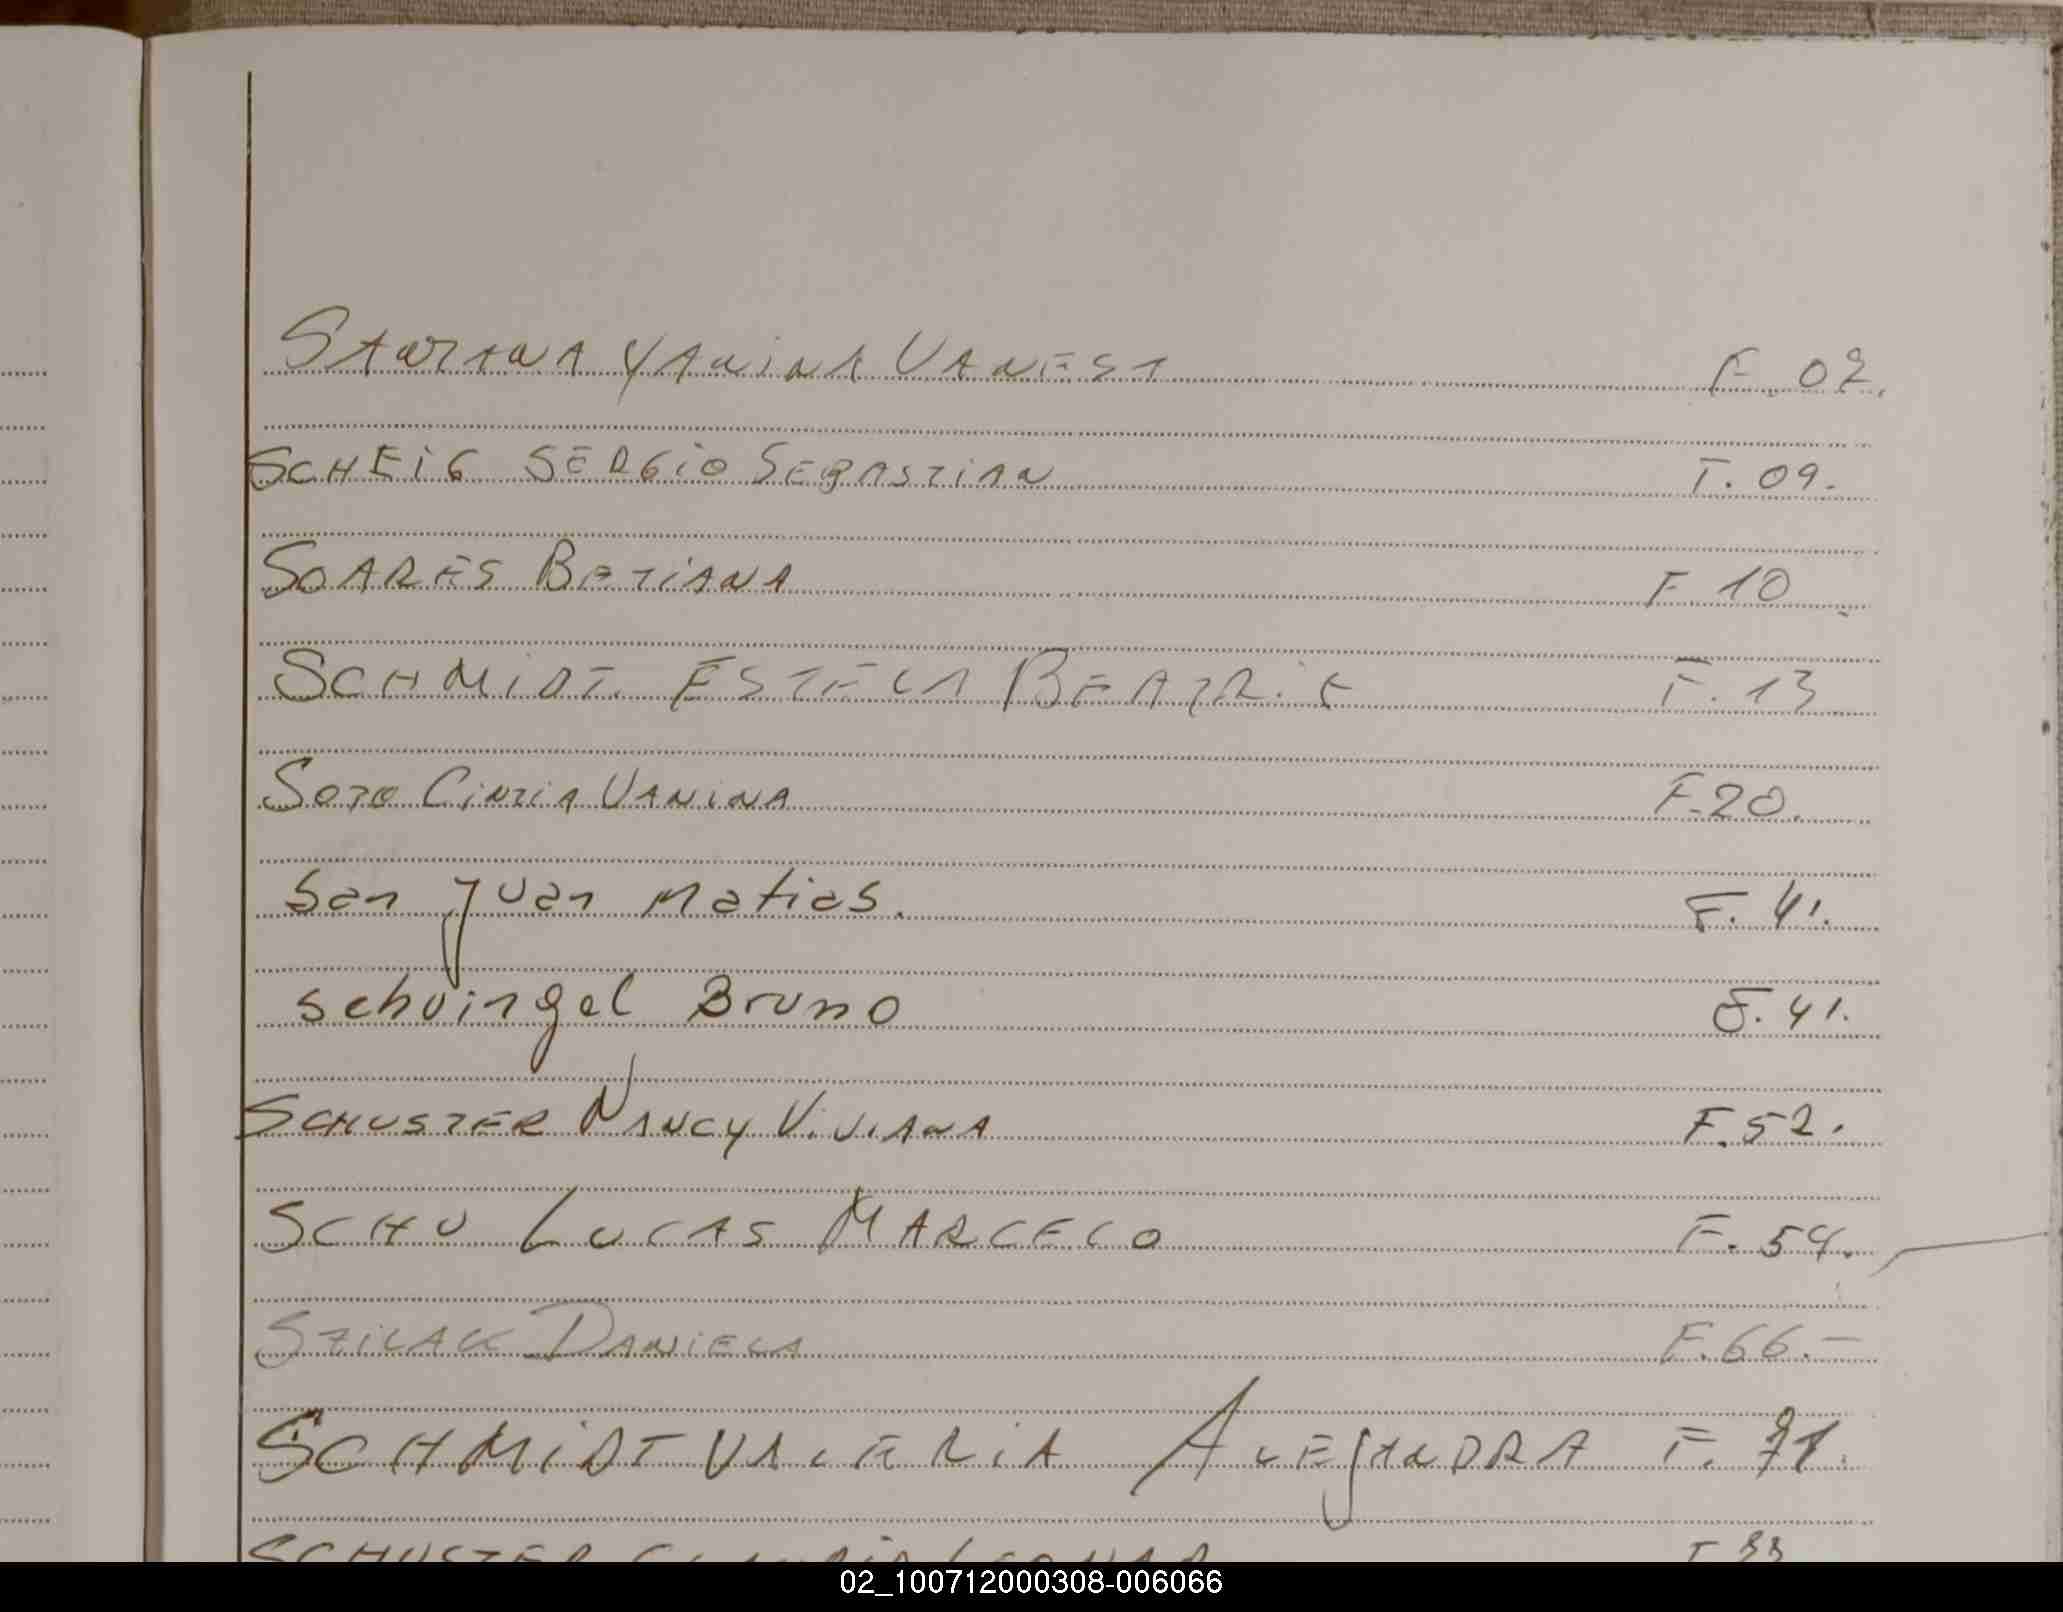 SANTANA YANINA VANESA F. 02.
SCHEIG SERGIO SEBASTIAN F. 09.
SOARES BETIANA F 10
SCHMIDT ESTELA BEATRIZ F. 13
SOTO CINTIA VANINA F. 20.
San Juan Matias. F. 41.
Schvingel Bruno F. 41.
SCHUSTER NANCY VIVIANA F. 52.
SCHU LUCAS MARCELO F. 54.
SZILAK DANIELA F. 66.-
SCHMIDT VALERIA ALEJANDRA F. 71.
SCHUSTER
02_100712000308-006066